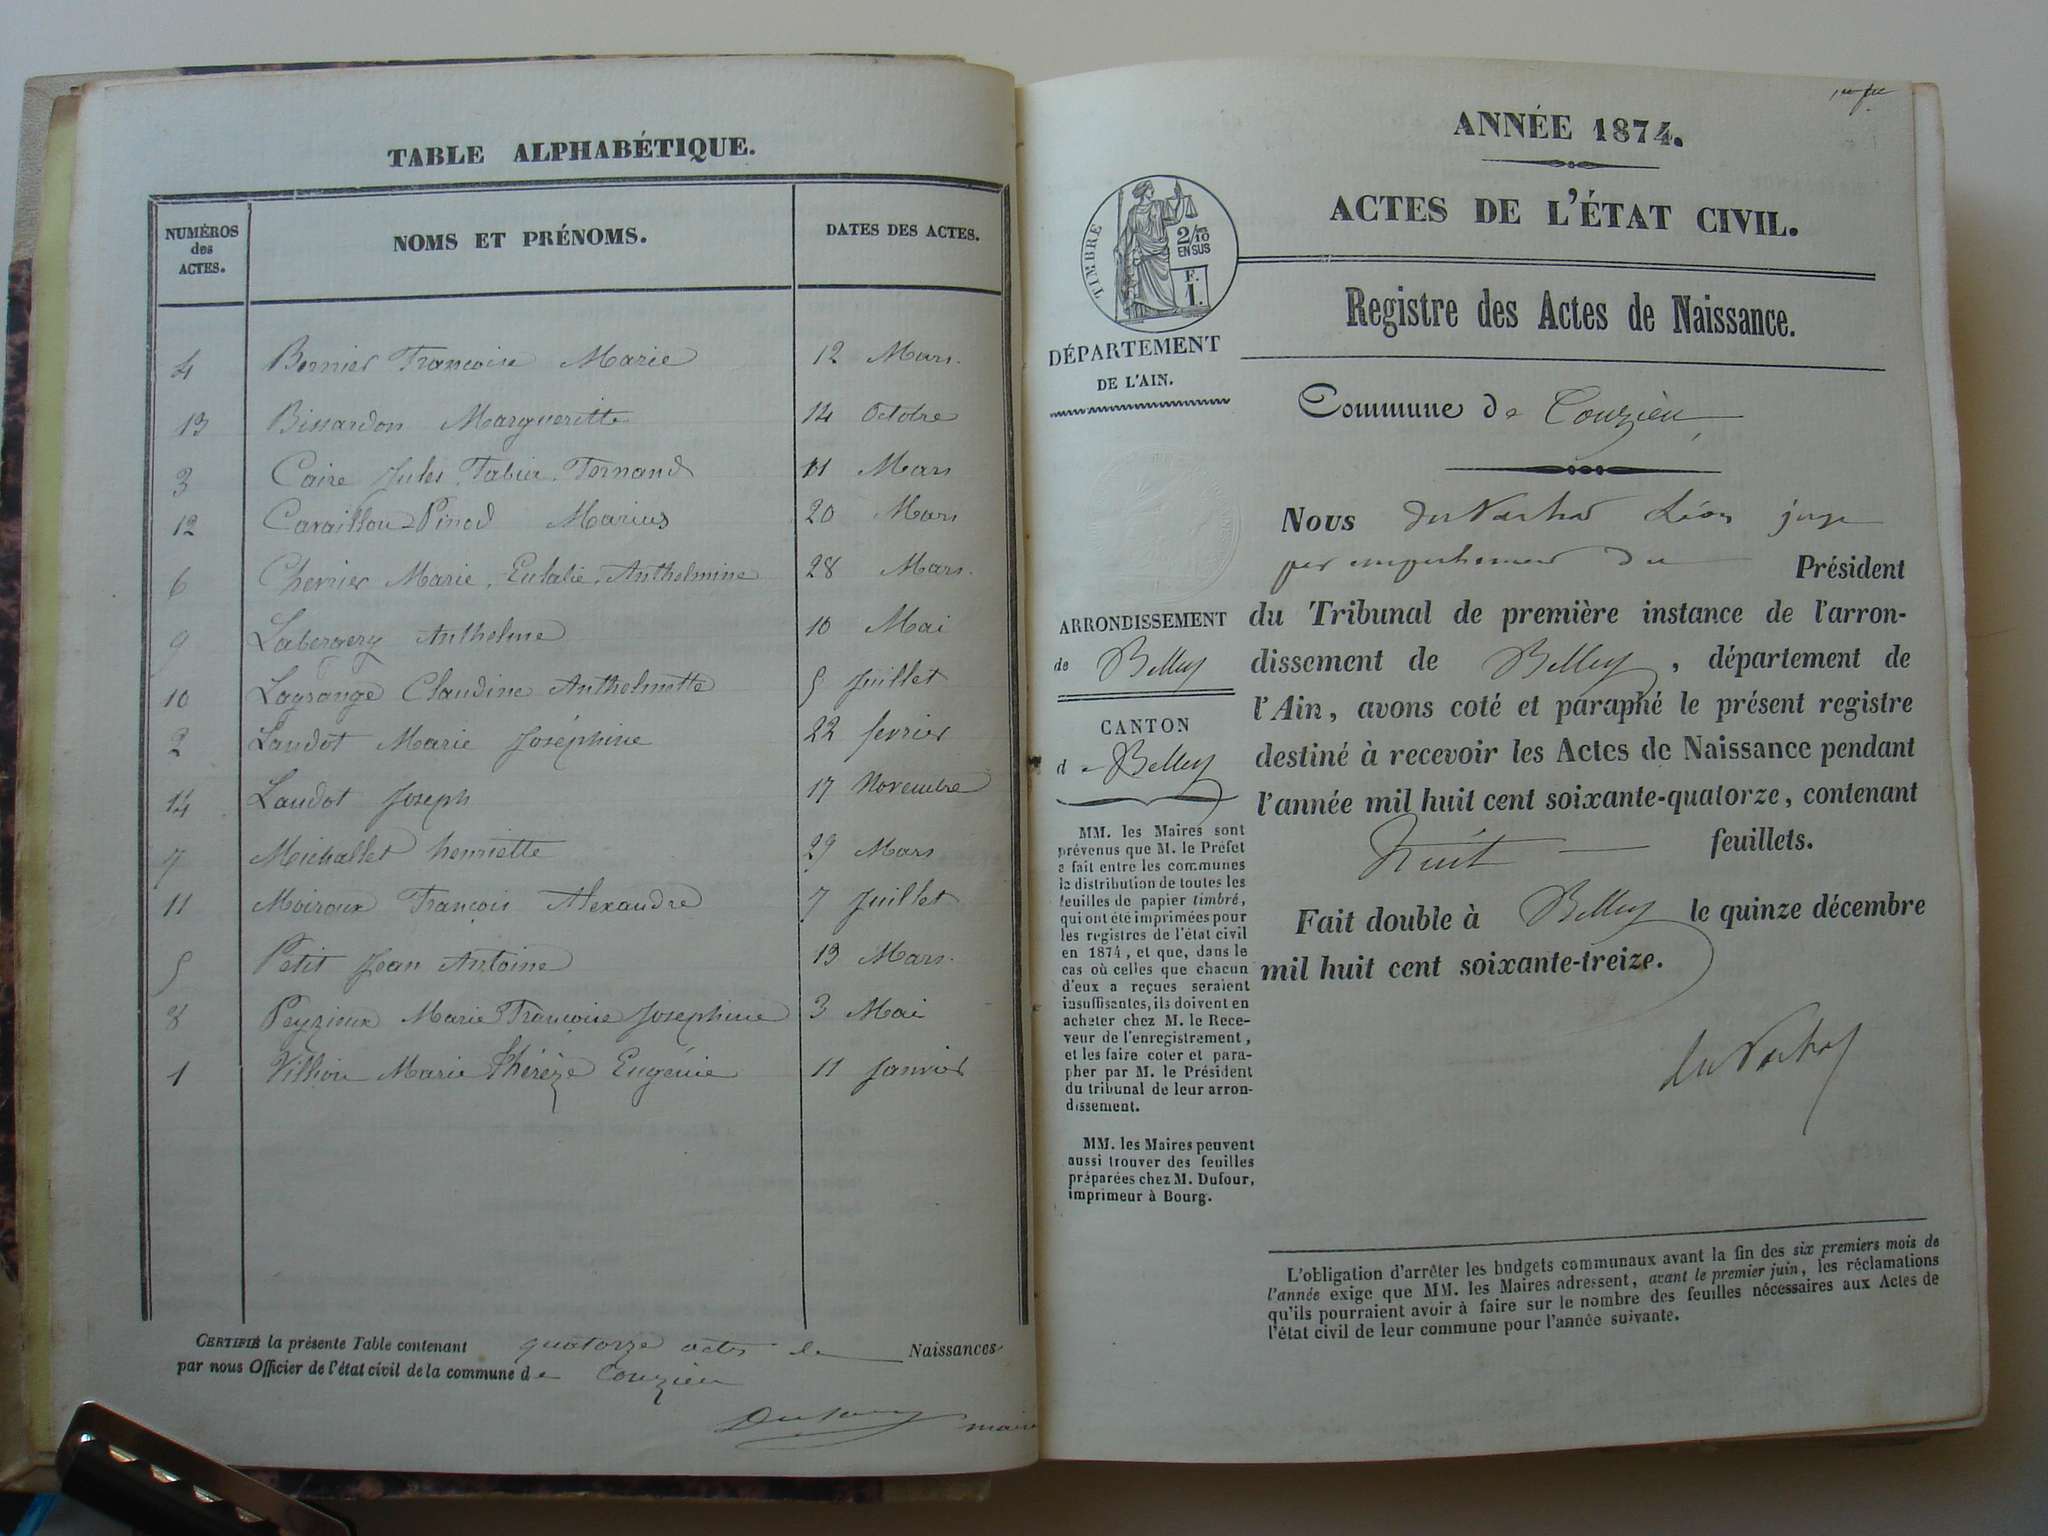 TABLE ALPHABÉTIQUE.
NUMÉROS des ACTES. NOMS ET PRÉNOMS. DATES DES ACTES.
4 Bornier Françoise Marie 12 Mars.
13 Bissardon Margueritte 14 Octobre
3 Caire Jules, Fabia, Fernand 11 Mars
12 Caraillou-Pinod Marius 20 Mars
6 Chevrier Marie, Eulalie, Anthelmine 28 Mars.
9 Labergery Anthelme 10 Mai
10 Lagrange Claudine Anthelmette 5 Juillet
2 Laudot Marie Joséphine 22 fevrier
14 Laudot Joseph 17 Novembre
7 Michallet henriette 29 Mars
11 Moiroux François Alexandre 7 Juillet
5 Petit Jean Antoine 13 Mars.
8 Peyzieux Marie Françoise Josephine 3 Mai
1 Villion Marie Thérèze Eugénie 11 Janvier
CERTIFIÉ la présente Table contenant quatorze actes de Naissances
par nous Officier de l'état civil de la commune de Couzieu
maire
ANNÉE 1874.
ACTES DE L'ÉTAT CIVIL.
TIMBRE
2/10
EN SUS
F.
1.
Registre des Actes de Naissance.
DÉPARTEMENT
DE L'AIN.
Commune de Couzieu
Nous Léon juge
par empechement du Président
du Tribunal de première instance de l'arron-
dissement de Belley, département de
l'Ain, avons coté et paraphé le présent registre
destiné à recevoir les Actes de Naissance pendant
l'année mil huit cent soixante-quatorze, contenant
Huit feuillets.
Fait double à Belley le quinze décembre
mil huit cent soixante-treize.
ARRONDISSEMENT
de Belley
CANTON
de Belley
MM. les Maires sont
prévenus que M. le Préfet
a fait entre les communes
la distribution de toutes les
feuilles de papier timbré,
qui ont été imprimées pour
les registres de l'état civil
en 1874, et que, dans le
cas où celles que chacun
d'eux a reçues seraient
insuffisantes, ils doivent en
acheter chez M. le Rece-
veur de l'enregistrement,
et les faire coter et para-
pher par M. le Président
du tribunal de leur arron-
dissement.
MM. les Maires peuvent
aussi trouver des feuilles
préparées chez M. Dufour,
imprimeur à Bourg.
L'obligation d'arrêter les budgets communaux avant la fin des six premiers mois de
l'année exige que MM. les Maires adressent, avant le premier juin, les réclamations
qu'ils pourraient avoir à faire sur le nombre des feuilles nécessaires aux Actes de
l'état civil de leur commune pour l'année suivante.